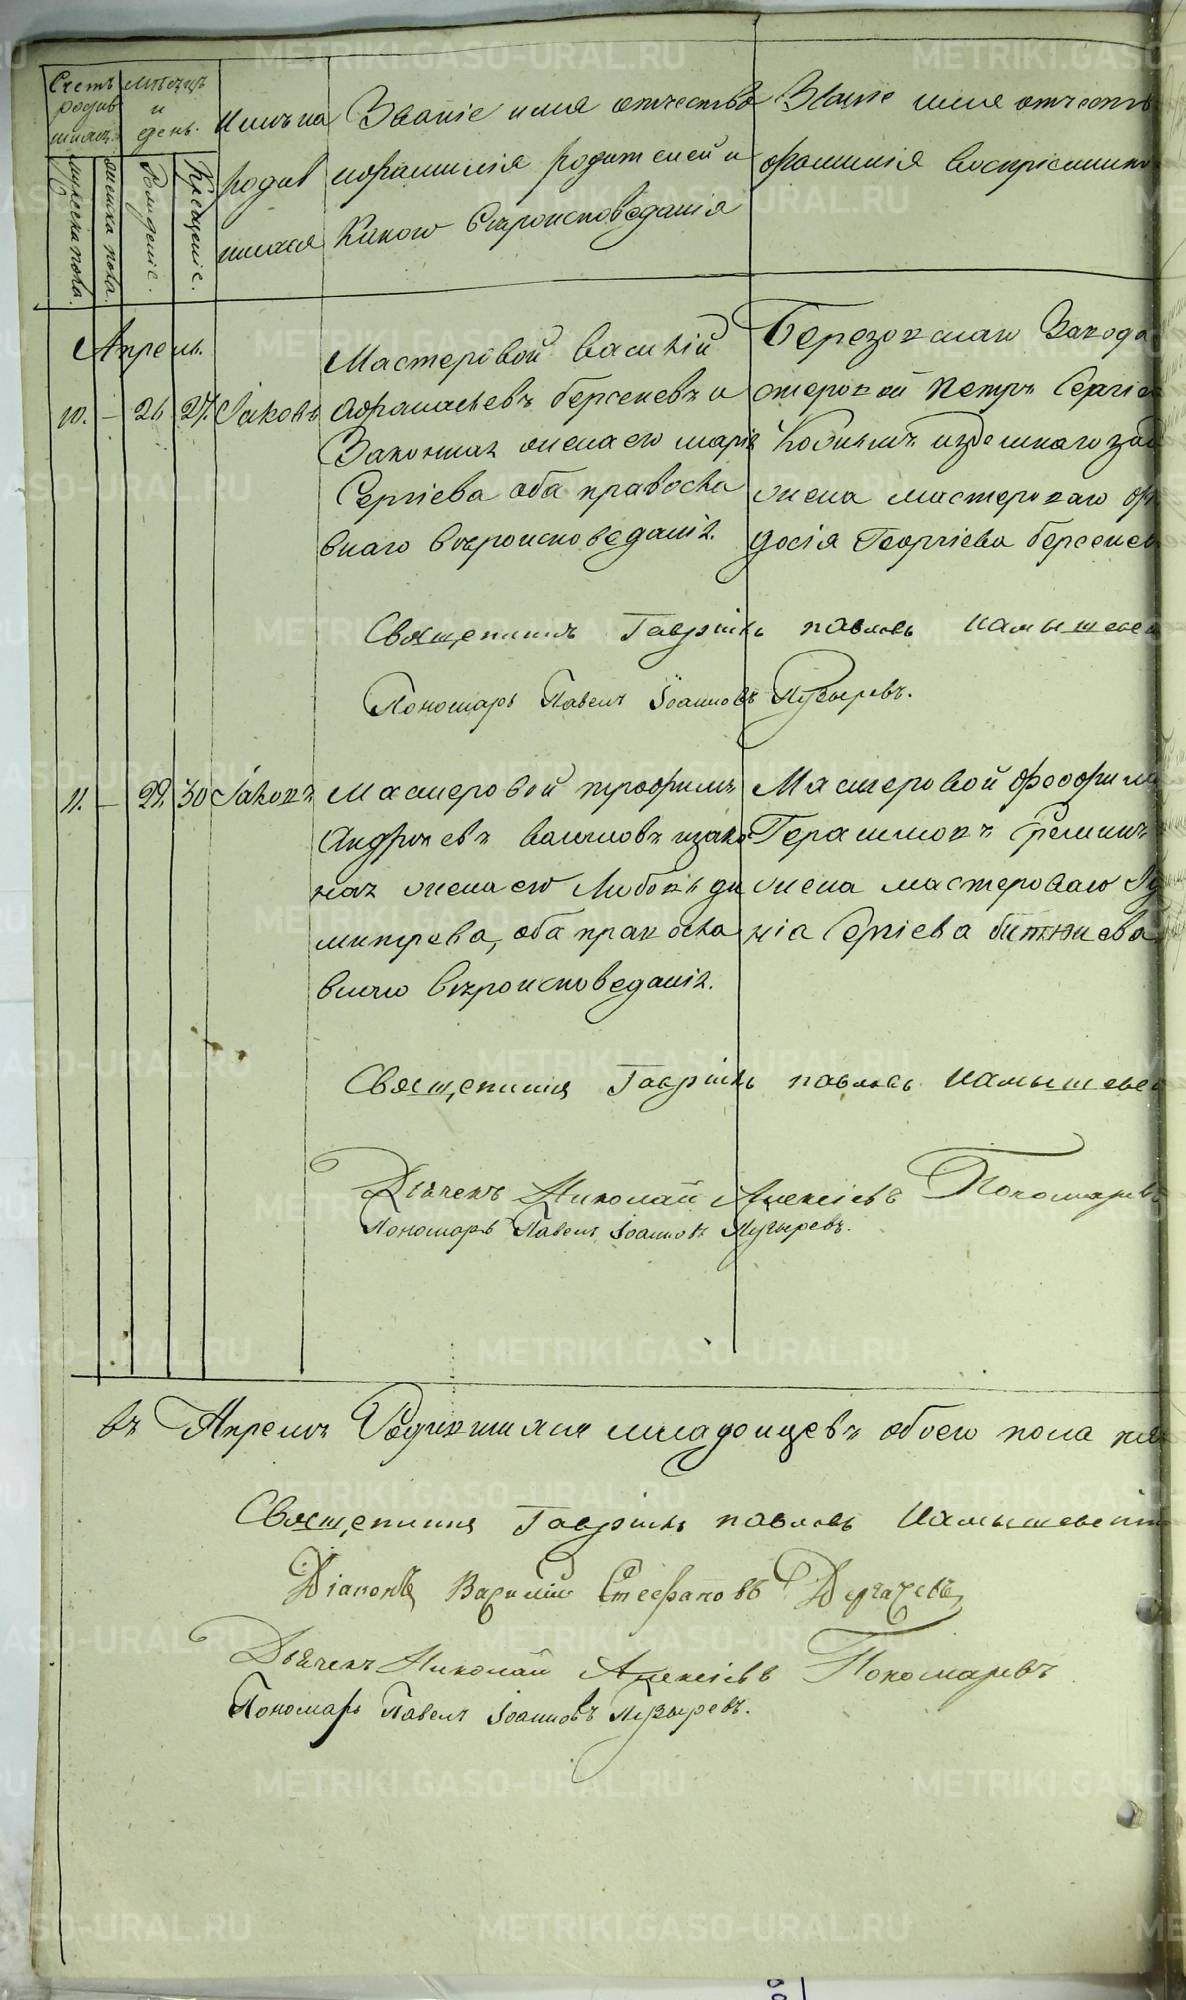 Счетъ родив шихся.
мѣсяцъ и день.
мужеска пола.
женска пола.
Рожденіе.
Крещеніе.
Имѣна родив шихся
Званіе имя отчество
и фамилія родителей и
какого вѣроисповеданія
Званіе имя отчеств
фамилія воспріемнико
Апрель.
10. – 26 27. Іаковъ
Мастеровой василій
Афанасьевъ берсеневъ и
Законная жена его марія
Сергіева оба правосла
внаго вѣроисповеданія.
Березовскаго Завода
стеровой Петръ Сергіе
Кобнынъ издешнаго за
жена мастероваго
досія Георгіева берсене
Священникъ Гавріилъ павловъ
Пономарь Павелъ Іоанновъ Пузыревъ.
11. – 29. 30 Іаковъ
Мастеровой трофимъ
Андреевъ вашловъ изако
ная жена его Любовь ди
митрева, оба правосла
внаго вѣроисповеданія.
Мастеровой феофил
Герасимовъ Греминъ
жена мастероваго
нія Сергіева битюнева
Священникъ Гавріилъ павловъ
Дьячекъ Николай Алексіевъ Пономаревъ
Пономарь Павелъ Іоанновъ Пузыревъ.
въ Апреле Родившихся младенцевъ обоего пола
Священникъ Гавріилъ павловъ
Діаконъ Василій Стефановъ Дергачевъ
Дьячекъ Николай Алексіевъ Пономаревъ
Пономарь Павелъ Іоанновъ Пузыревъ.
METRIKI.GASO-URAL.RU